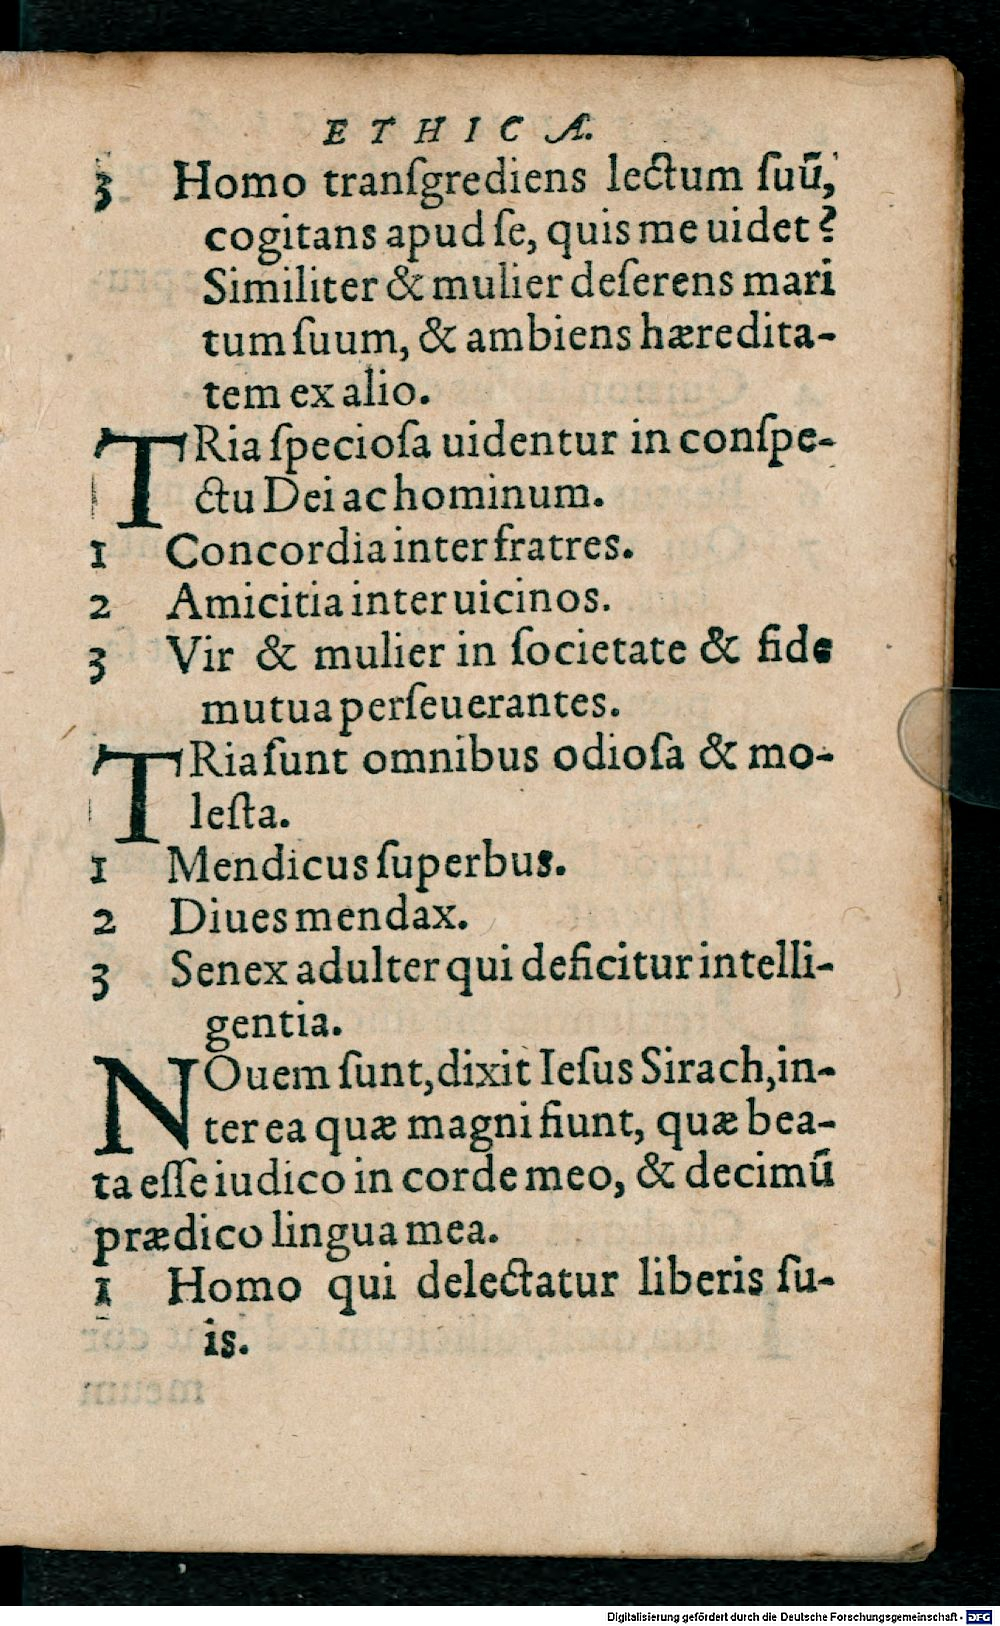 ETHICÆ.
3 Homo tranſgrediens lectum ſuũ,
cogitans apud ſe, quis me uidet?
Similiter & mulier deſerens mari
tum ſuum, & ambiens hæredita-
tem ex alio.
TRia ſpecioſa uidentur in conſpe-
ctu Dei ac hominum.
1 Concordia inter fratres.
2 Amicitia inter uicinos.
3 Vir & mulier in ſocietate & fide
mutua perſeuerantes.
TRia ſunt omnibus odioſa & mo-
leſta.
1 Mendicus ſuperbus.
2 Diues mendax.
3 Senex adulter qui deficitur intelli-
gentia.
NOuem ſunt, dixit Ieſus Sirach, in-
ter ea quæ magni fiunt, quæ bea-
ta eſſe iudico in corde meo, & decimũ
prædico lingua mea.
1 Homo qui delectatur liberis ſu-
is.
Digitalisierung gefördert durch die Deutsche Forschungsgemeinschaft - DFG